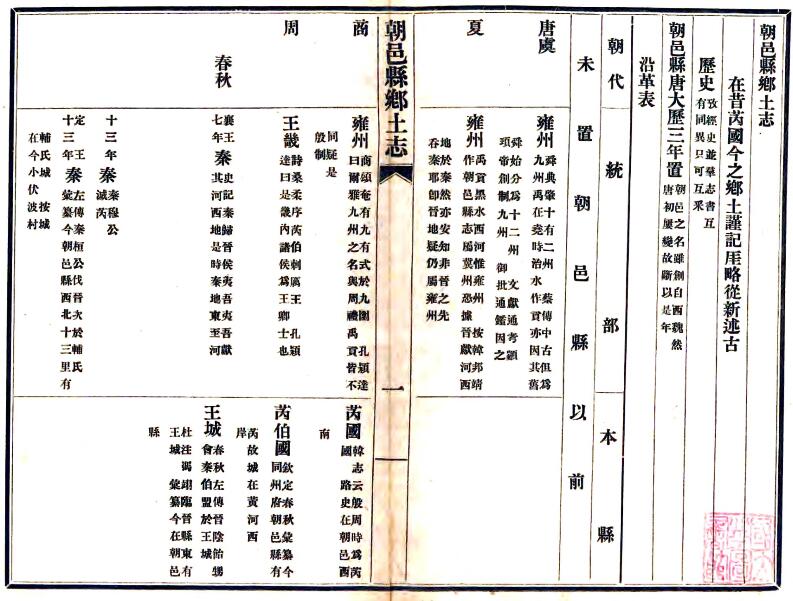 朝邑縣鄉土志
在昔芮國今之鄉土謹記厓略從新述古
歷史
攷經史並羣志書互
有同異只可互釆
朝邑縣唐大歷三年置
朝邑之名雖創自西魏然
唐初屢變故斷以是年
沿革表
朝代
統部
本縣
未置朝邑縣以前
唐虞
雍州
舜典肇十有二州 蔡傳中古但爲
九州禹在堯時治水作貢亦因其舊
舜始分爲十二州 文獻通考顓
頊帝創制九州 御批通鑑因之
夏
雍州
禹貢黑水西河惟雍州 按韓邦靖
作朝邑縣志屬冀州恐據晉獻河西
地於秦然亦安知非晉之先
吞秦耶卽晉地疑仍屬雍州
朝邑縣鄉土志
一
商
雍州
商頌奄有九有式於九圍 孔穎達
曰爾雅九州之名與周禮禹貢皆不
同疑是
殷制
芮國
韓志云殷周時爲芮
國 路史在朝邑西
南
周
王畿
詩桑柔序芮伯刺厲王 孔穎
達曰是畿內諸侯爲王卿士也
芮伯國
欽定春秋彙纂今
同州府朝邑縣有
芮故城在黃河西
岸
春秋
襄王
七年
秦
史記秦歸晉侯夷吾夷吾獻
其河西地是時秦地東至河
王城
春秋左傳晉陰飴甥
會秦伯盟於王城
杜注馮翊臨晉縣東有
王城 彙纂今在朝邑
縣
十三年
秦
秦穆公
滅芮
定王
十三年
秦
左傳秦桓公伐晉次於輔氏
彙纂今朝邑縣西北十三里有
輔氏城 按城
在今小伏波村